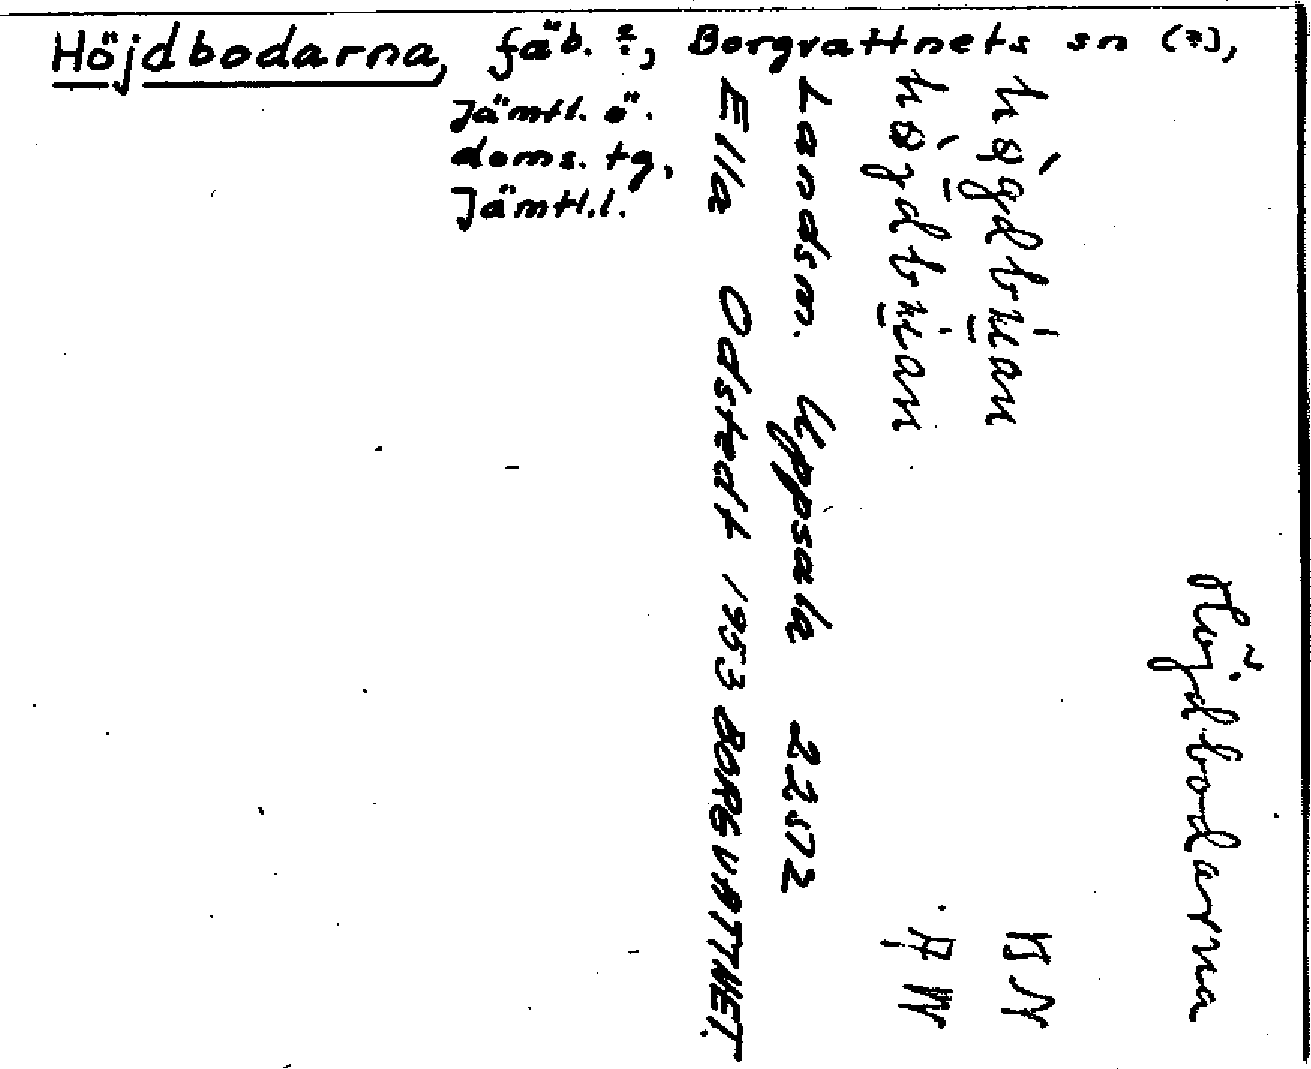 Höjdbodarna, fäb. ?, Borgvattnets sn (?),
Jämtl. ö.
doms. tg,
Jämtl.l.
Höjdbodarna
KN
AW
Landsm. Uppsala 22572
Ella Odstedt 1953 BORGVATTNET.